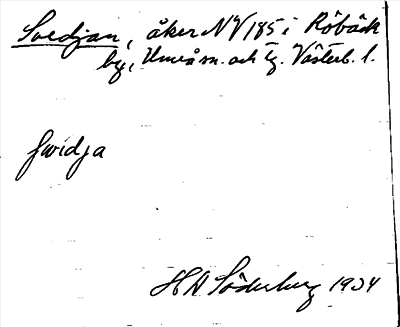 Svedjan, åker No 185 i Röbäck
by, Umeå sn. och tg. Västerb. l.
svidja
H A Söderberg 1934